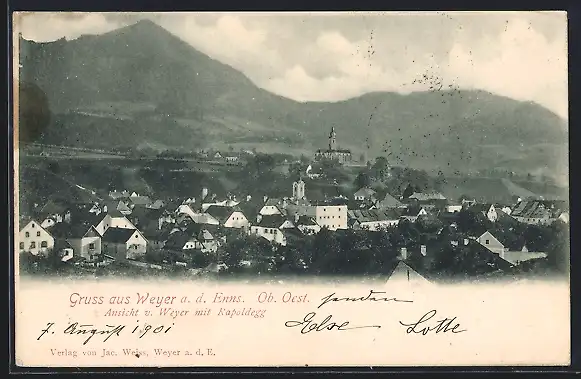 Gruss aus Weyer a. d. Enns. Ob. Oest. senden
Ansicht v. Weyer mit Rapoldegg
7. August 1901 Else Lotte
Verlag von Jac. Weiss, Weyer a. d. E.